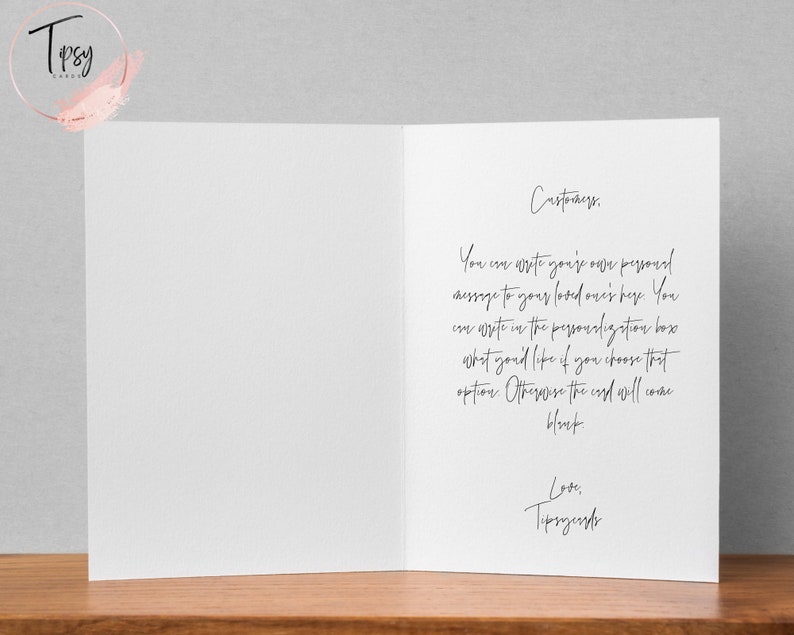 Tipsy
CARDS
Customers,
You can write you're own personal
message to your loved one's here. You
can write in the personalization box
what you'd like if you choose that
option. Otherwise the card will come
blank.
Love,
Tipsycards